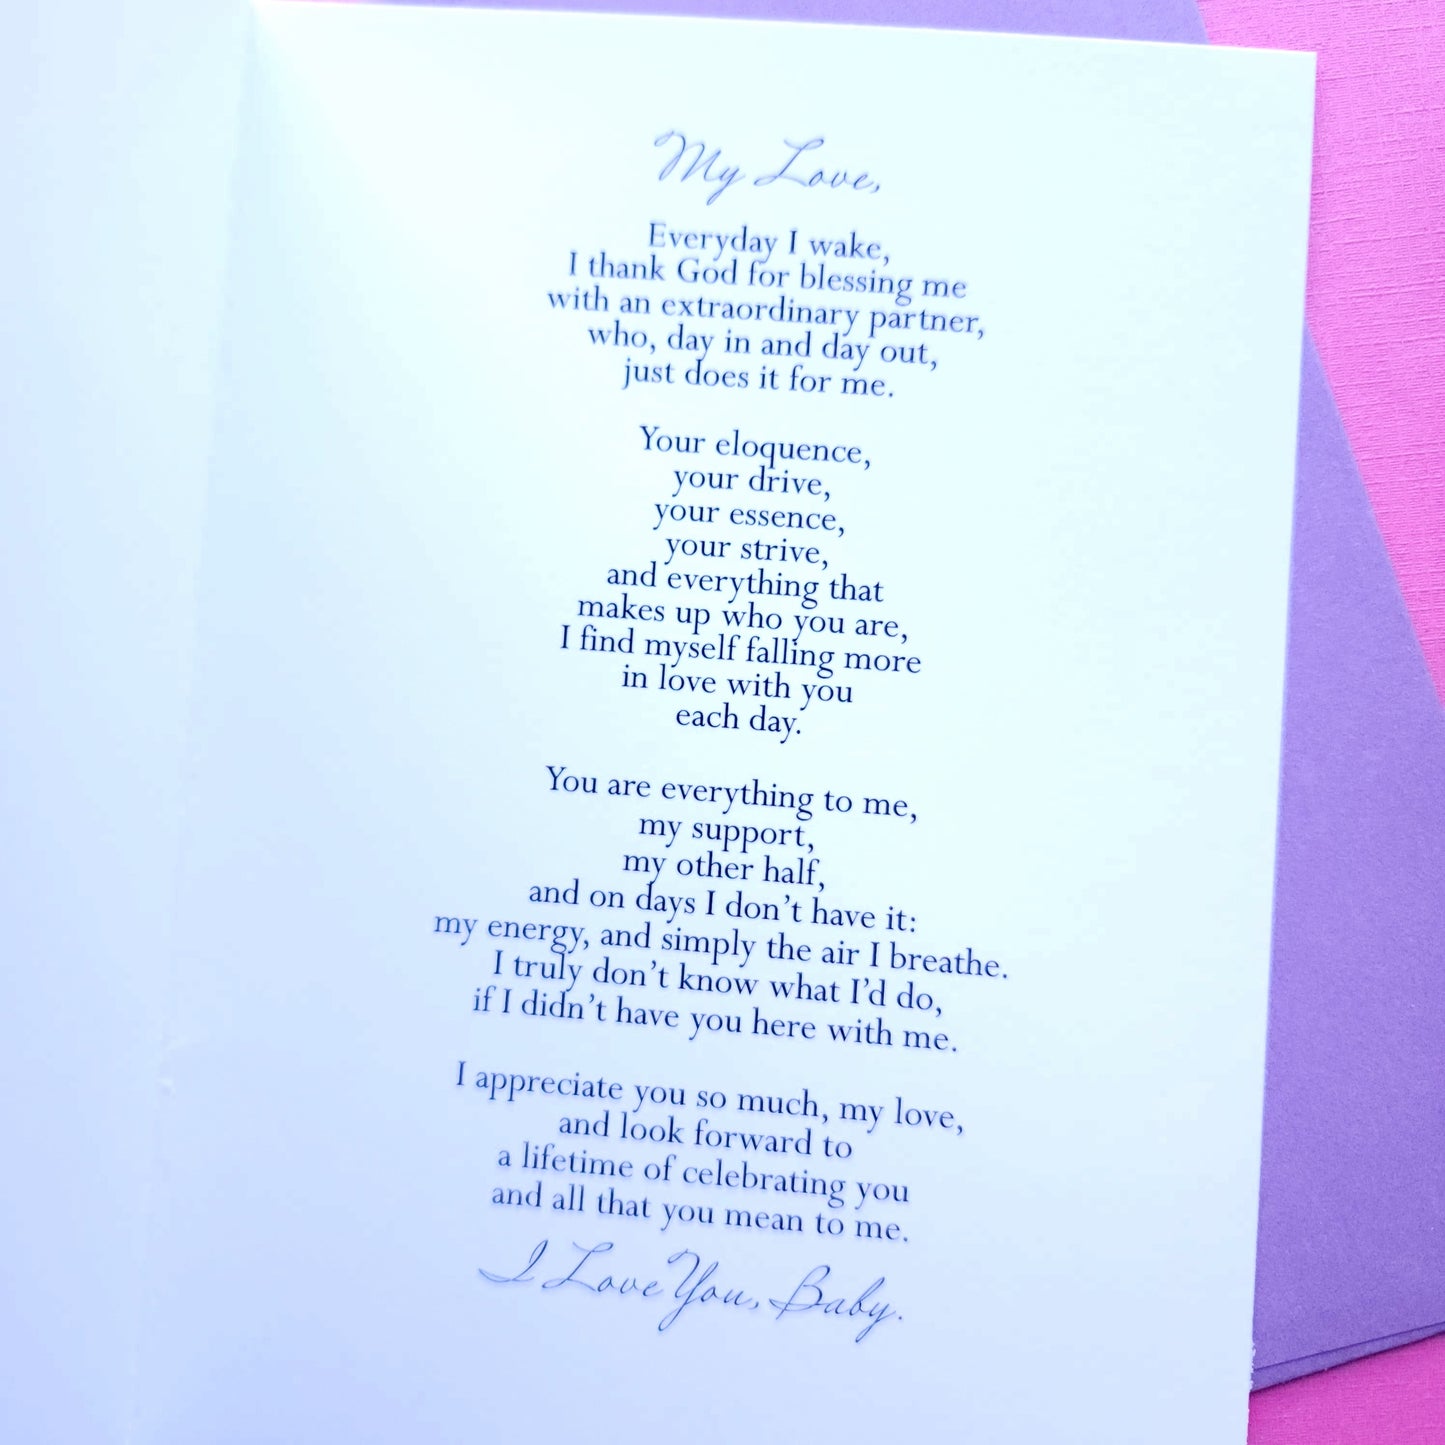 My Love,
Everyday I wake,
I thank God for blessing me
with an extraordinary partner,
who, day in and day out,
just does it for me.
Your eloquence,
your drive,
your essence,
your strive,
and everything that
makes up who you are,
I find myself falling more
in love with you
each day.
You are everything to me,
my support,
my other half,
and on days I don’t have it:
my energy, and simply the air I breathe.
I truly don’t know what I’d do,
if I didn’t have you here with me.
I appreciate you so much, my love,
and look forward to
a lifetime of celebrating you
and all that you mean to me.
I Love You, Baby.